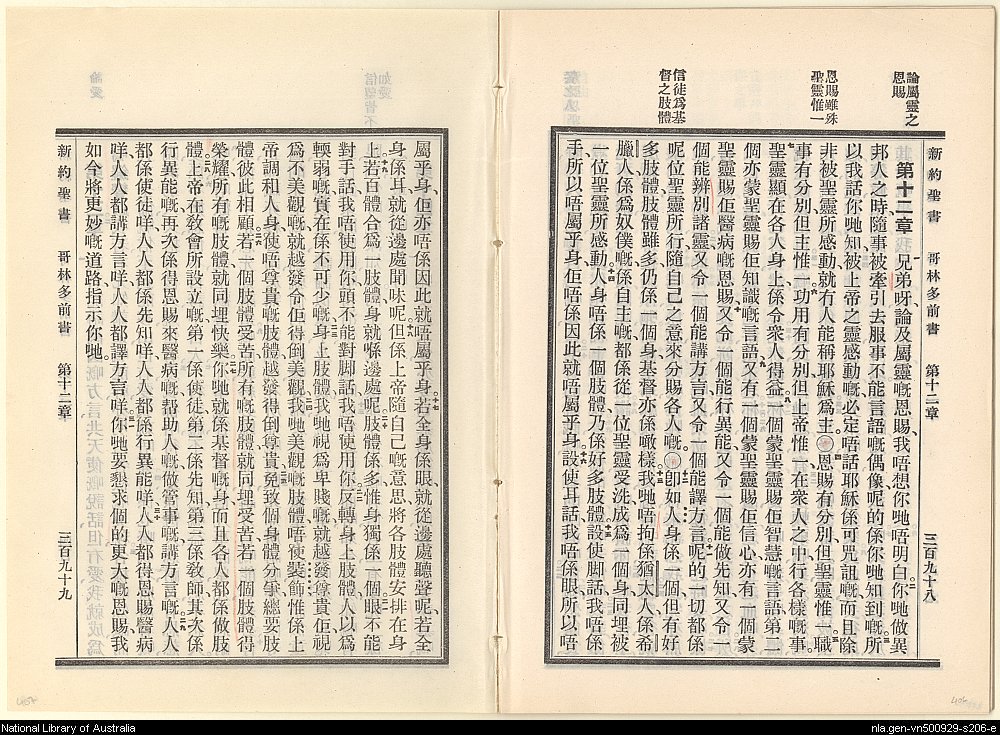 論屬靈之
恩賜
恩賜雖殊
聖靈惟一
信徒爲基
督之肢體
新約聖書 哥林多前書 第十二章 三百九十八
第十二章 一兄弟呀、論及屬靈嘅恩賜、我唔想你哋唔明白。二你哋做異
邦人之時、隨事被牽引、去服事不能言語嘅偶像、呢的係你哋知到嘅。三所
以我話你哋知、被上帝之靈感動嘅、必定唔話耶穌係可咒詛嘅、而且除
非被聖靈所感動、就冇人能稱耶穌爲主。○四恩賜有分別、但聖靈惟一、五職
事有分別、但主惟一、六功用有分別、但上帝惟一、在衆人之中行各樣嘅事。
七聖靈顯在各人身上、係令衆人得益。八一個蒙聖靈賜佢智慧嘅言語、第二
個亦蒙聖靈賜佢知識嘅言語、九又有一個蒙聖靈賜佢信心、亦有一個蒙
聖靈賜佢醫病嘅恩賜、十又令一個能行異能、又令一個能做先知、又令一
個能辨別諸靈、又令一個能講方言、又令一個能譯方言。十一呢的一切都係
呢位聖靈所行、隨自己之意、來分賜各人嘅。○十二卽如人身係一個、但有好
多肢體、肢體雖多、仍係一個身、基督亦係噉樣。十三我哋唔拘係猶太人、係希
臘人、係爲奴僕嘅、係自主嘅、都係從一位聖靈受洗、成爲一個身、同埋被
一位聖靈所感動。十四人身唔係一個肢體、乃係好多肢體。十五設使脚話、我唔係
手、所以唔屬乎身、佢唔係因此就唔屬乎身。十六設使耳話、我唔係眼、所以唔
屬乎身、佢亦唔係因此就唔屬乎身。十七若全身係眼、就從邊處聽聲呢、若全
身係耳、就從邊處聞味呢。十八但係上帝隨自己嘅意思、將各肢體安排在身
上。十九若百體合爲一肢體、身就喺邊處呢。二十肢體係多、惟身獨係一個。二一眼不能
對手話、我唔使用你、頭不能對脚話、我唔使用你。二二反轉身上肢體、人以爲
輭弱嘅、實在係不可少嘅。二三身上肢體、我哋視爲卑賤嘅、就越發尊貴佢、視
爲不美觀嘅、就越發令佢得倒美觀。二四我哋美觀嘅肢體、唔使裝飾、惟係上
帝調和人身、使唔尊貴嘅肢體、越發得倒尊貴。二五免致個身體分爭、總要肢
體彼此相顧。二六若一個肢體受苦、所有嘅肢體就同埋受苦、若一個肢體得
榮耀、所有嘅肢體就同埋快樂。二七你哋就係基督嘅身、而且各人都係做肢
體。二八上帝在敎會所設立嘅、第一係使徒、第二係先知、第三係敎師、其次係
行異能嘅、再次係得恩賜來醫病嘅、帮助人嘅、做管事嘅、講方言嘅。二九人人
都係使徒咩、人人都係先知咩、人人都係敎師咩、人人都係行異能咩、三十人人都得恩賜醫病
咩、人人都講方言咩、人人都譯方言咩。三一你哋要懇求個的更大嘅恩賜、我
如今將更妙嘅道路、指示你哋。
新約聖書 哥林多前書 第十二章 三百九十九
National Library of Australia
nla.gen-vn500929-s206-e